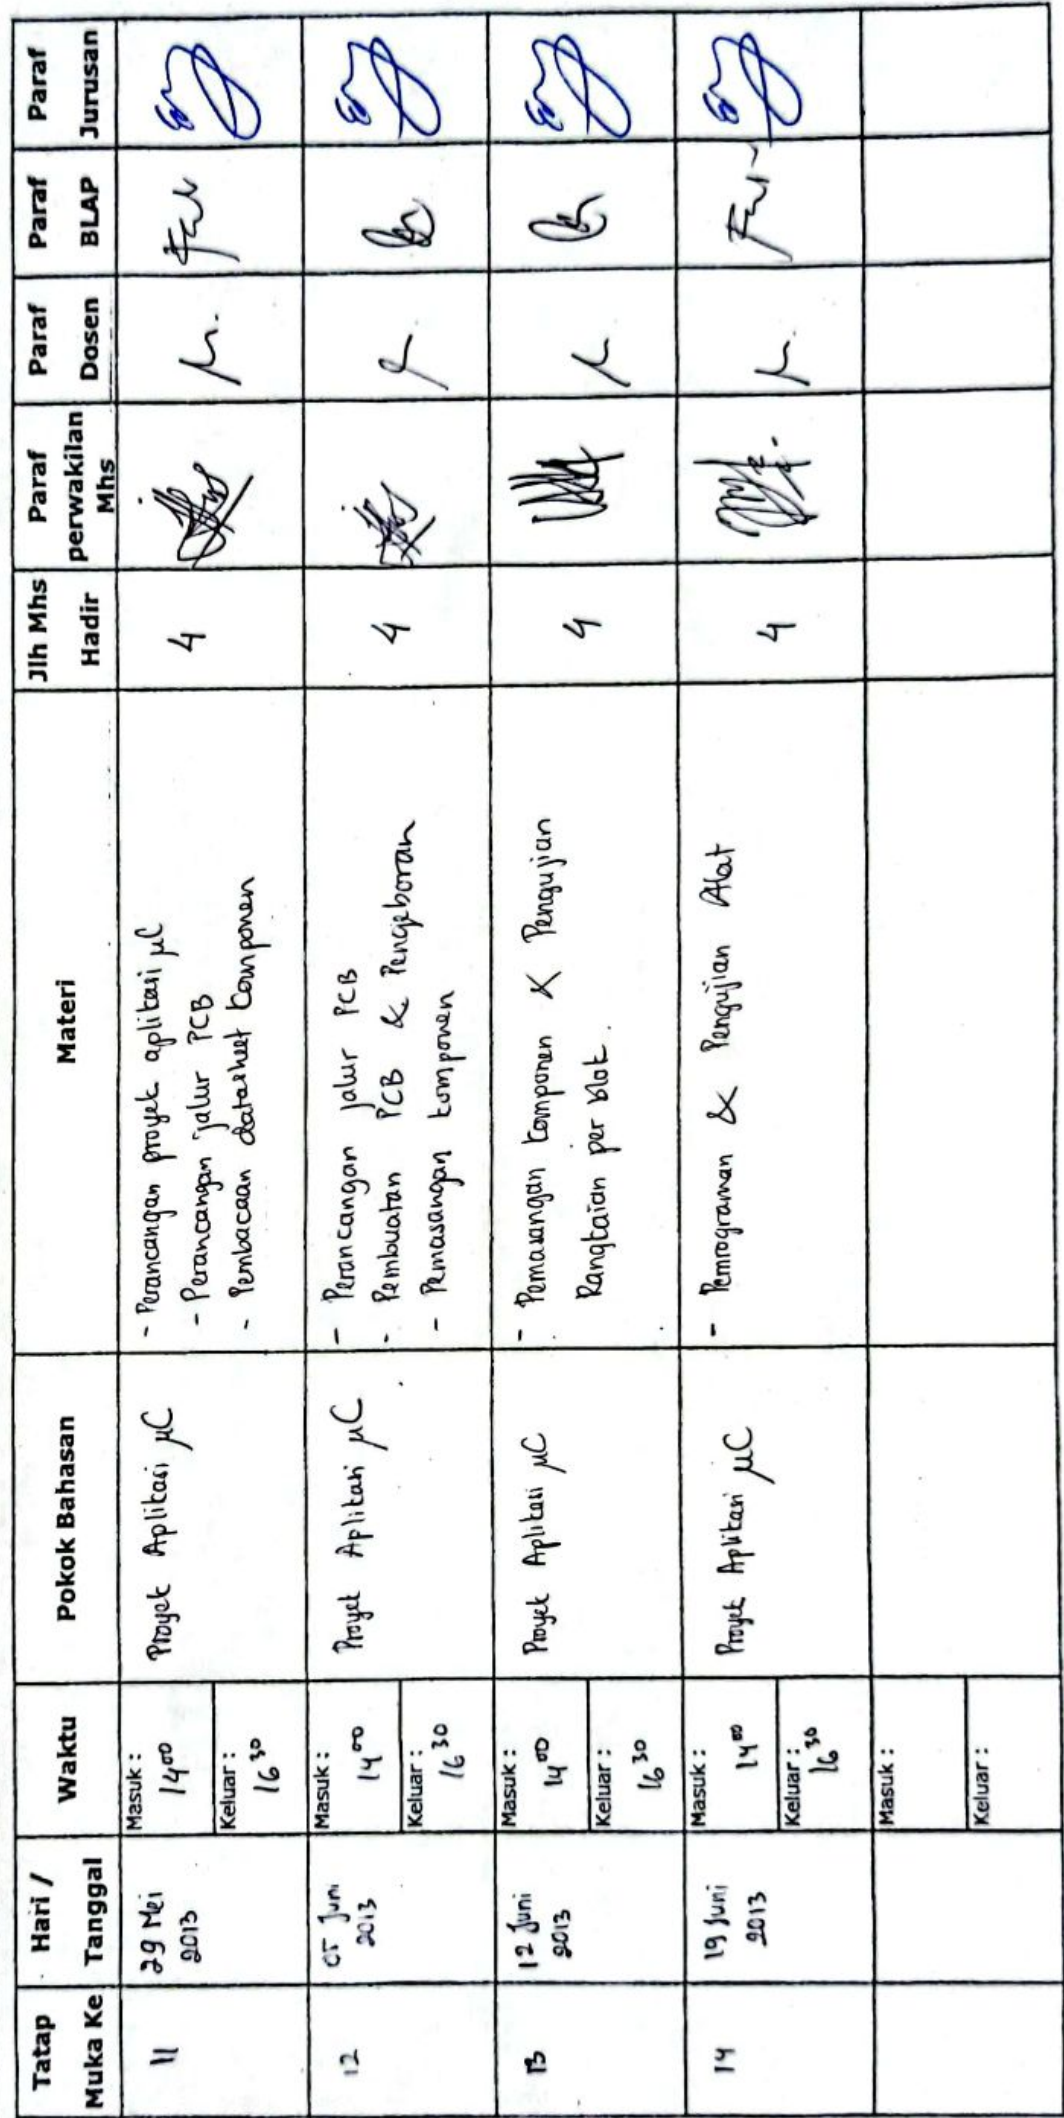 Tatap Muka Ke
Hari / Tanggal
Waktu
Pokok Bahasan
Materi
Jlh Mhs Hadir
Paraf perwakilan Mhs
Paraf Dosen
Paraf BLAP
Paraf Jurusan
11
29 Mei
2013
Masuk :
14 00
Keluar :
16 30
Proyek Aplikasi µC
- Perancangan proyek aplikasi µC
- Perancangan jalur PCB
- Pembacaan datasheet komponen
4
12
05 Juni
2013
Masuk :
14 00
Keluar :
16 30
Proyek Aplikasi µC
- Perancangan jalur PCB
- Pembuatan PCB & Pengeboran
- Pemasangan komponen
4
13
12 Juni
2013
Masuk :
14 00
Keluar :
16 30
Proyek Aplikasi µC
- Pemasangan komponen & Pengujian
Rangkaian per blok.
4
14
19 Juni
2013
Masuk :
14 00
Keluar :
16 30
Proyek Aplikasi µC
- Pemrograman & Pengujian Alat
4
Masuk :
Keluar :